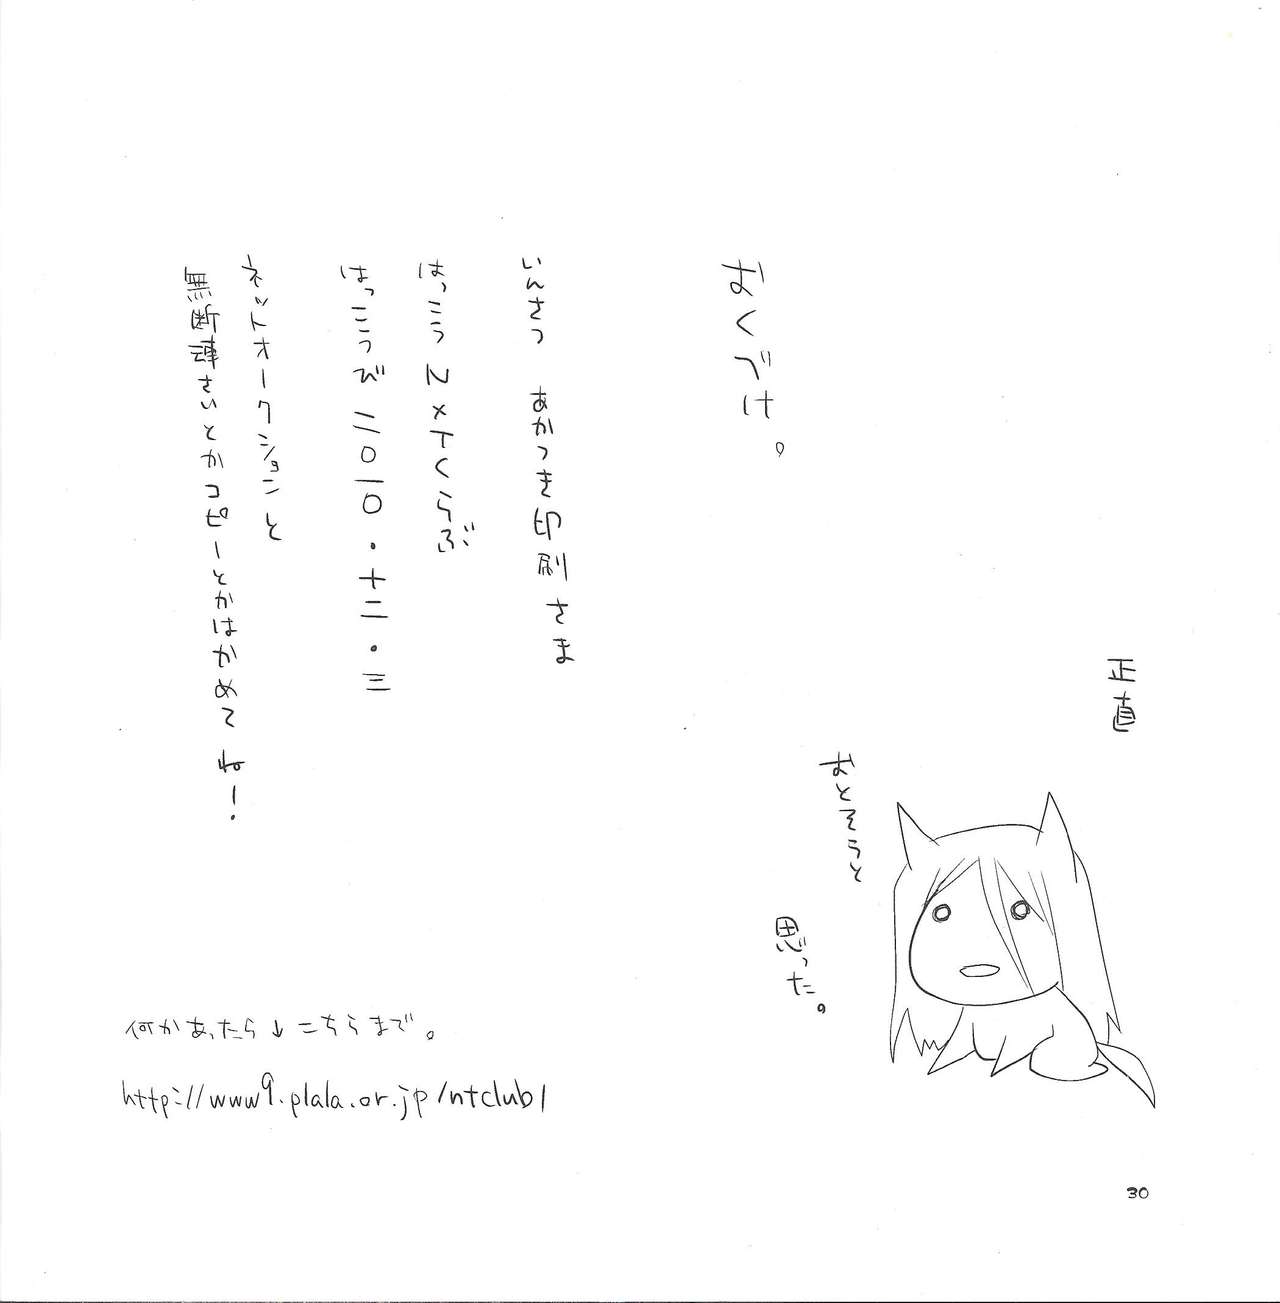 正直
おとそうと
思った。
おくづけ。
いんさつ あかつき印刷さま
はっこう N×Tくらぶ
はっこうび 二〇一〇・十二・三
ネットオークションと
無断転さいとかコピーとかはかめてね!
何かあったら↓こちらまで。
http://www9.plala.or.jp/ntclub1
30